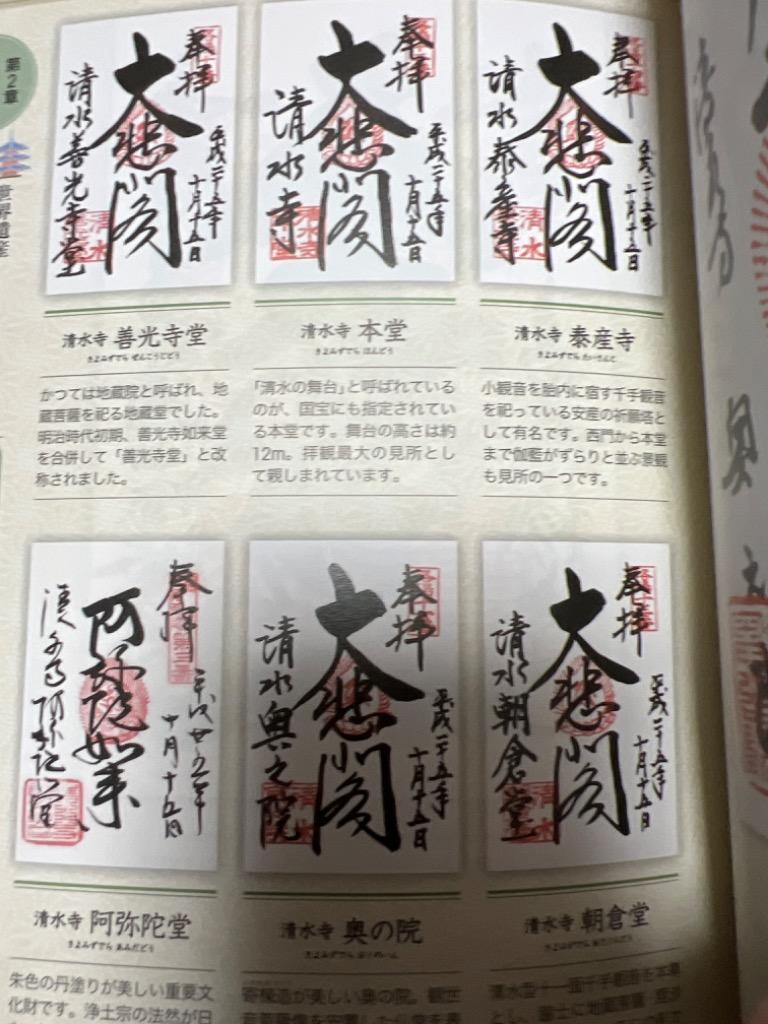 第2章
世界遺産
奉拝
大悲閣
清水善光寺堂
平成二十五年
十月十五日
奉拝
大悲閣
清水寺
平成二十五年
十月十五日
奉拝
大悲閣
清水泰産寺
平成二十五年
十月十五日
清水寺 善光寺堂
きよみずでら ぜんこうじどう
かつては地蔵院と呼ばれ、地
蔵菩薩を祀る地蔵堂でした。
明治時代初期、善光寺如来堂
を合併して「善光寺堂」と改
称されました。
清水寺 本堂
きよみずでら ほんどう
「清水の舞台」と呼ばれている
のが、国宝にも指定されてい
る本堂です。舞台の高さは約
12m。拝観最大の見所とし
て親しまれています。
清水寺 泰産寺
きよみずでら たいさんじ
小観音を胎内に宿す千手観音
を祀っている安産の祈願塔と
して有名です。西門から本堂
まで伽藍がずらりと並ぶ景観
も見所の一つです。
奉拝
阿弥陀如来
平成廿五年
十月十五日
奉拝
大悲閣
清水奥之院
平成二十五年
十月十五日
奉拝
大悲閣
清水朝倉堂
平成二十五年
十月十五日
清水寺 阿弥陀堂
きよみずでら あみだどう
朱色の丹塗りが美しい重要文
化財です。浄土宗の法然が日
清水寺 奥の院
きよみずでら おくのいん
寄棟造が美しい奥の院。観世
清水寺 朝倉堂
きよみずでら あさくらどう
清水型十一面千手観音を本尊